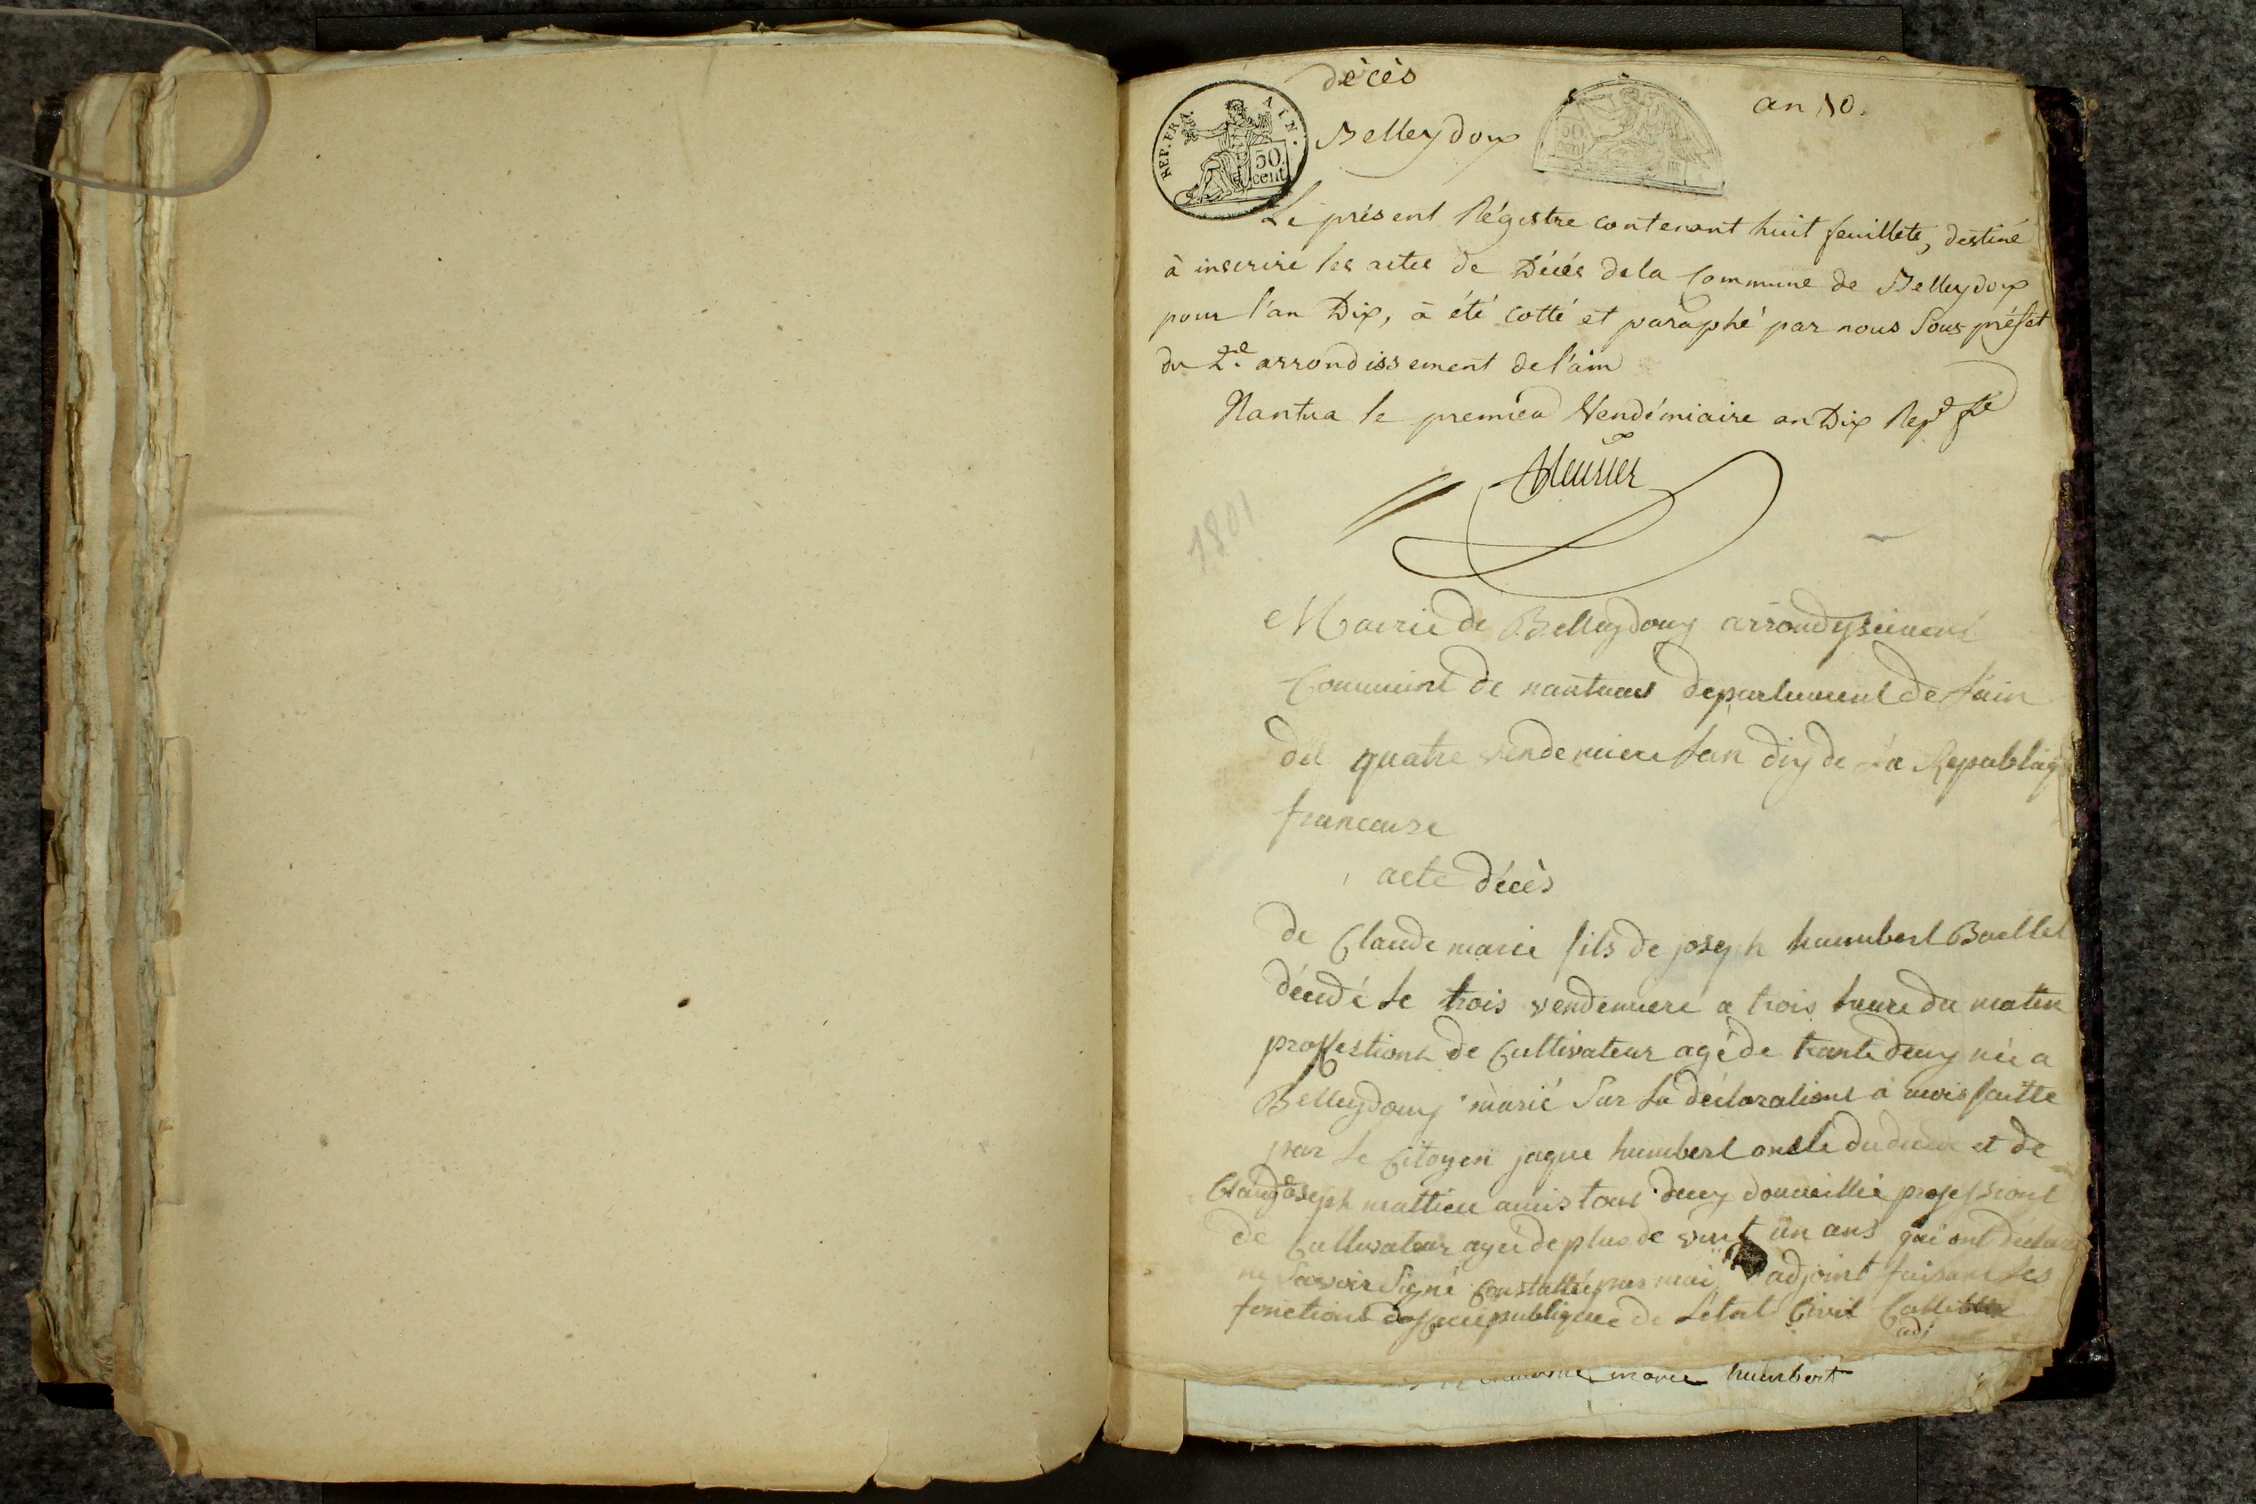 décès
an 10.
REP. FRA. AIN.
50
cent
Belleydoux
Le présent Régistre contenant huit feuillets, destiné
à inscrire les actes de Décès de la Commune de Belleydoux
pour l'an Dix, a été cotté et paraphé par nous Sous préfet
du 2e. arrondissement de l'ain
Nantua le premier Vendémiaire an Dix Repe fse
1801
Mairie de Belleydoux arrondyseiment
de nantuas departement de l'ain
du quatre vendemiere l'an dix de la Republiq
francaise
acte décès
de Claude marie fils de joseph humbert Baellet
décédé le trois vendemiere a trois heure du matin
proffestions de Cultivateur agé de trante deux née a
Belleydoux marié Sur la déclarations à moi faitte
par le Citoyen jaque humbert oncle du et de
Claud joseph mattieu amis tous deux professions
de Cultivateur agé de plus de vint un ans qui ont déclaré
ne Savoir Signé Constatté par moi adjoint faisant les
fonctions publique de Letat Civil
adj
marie humbert